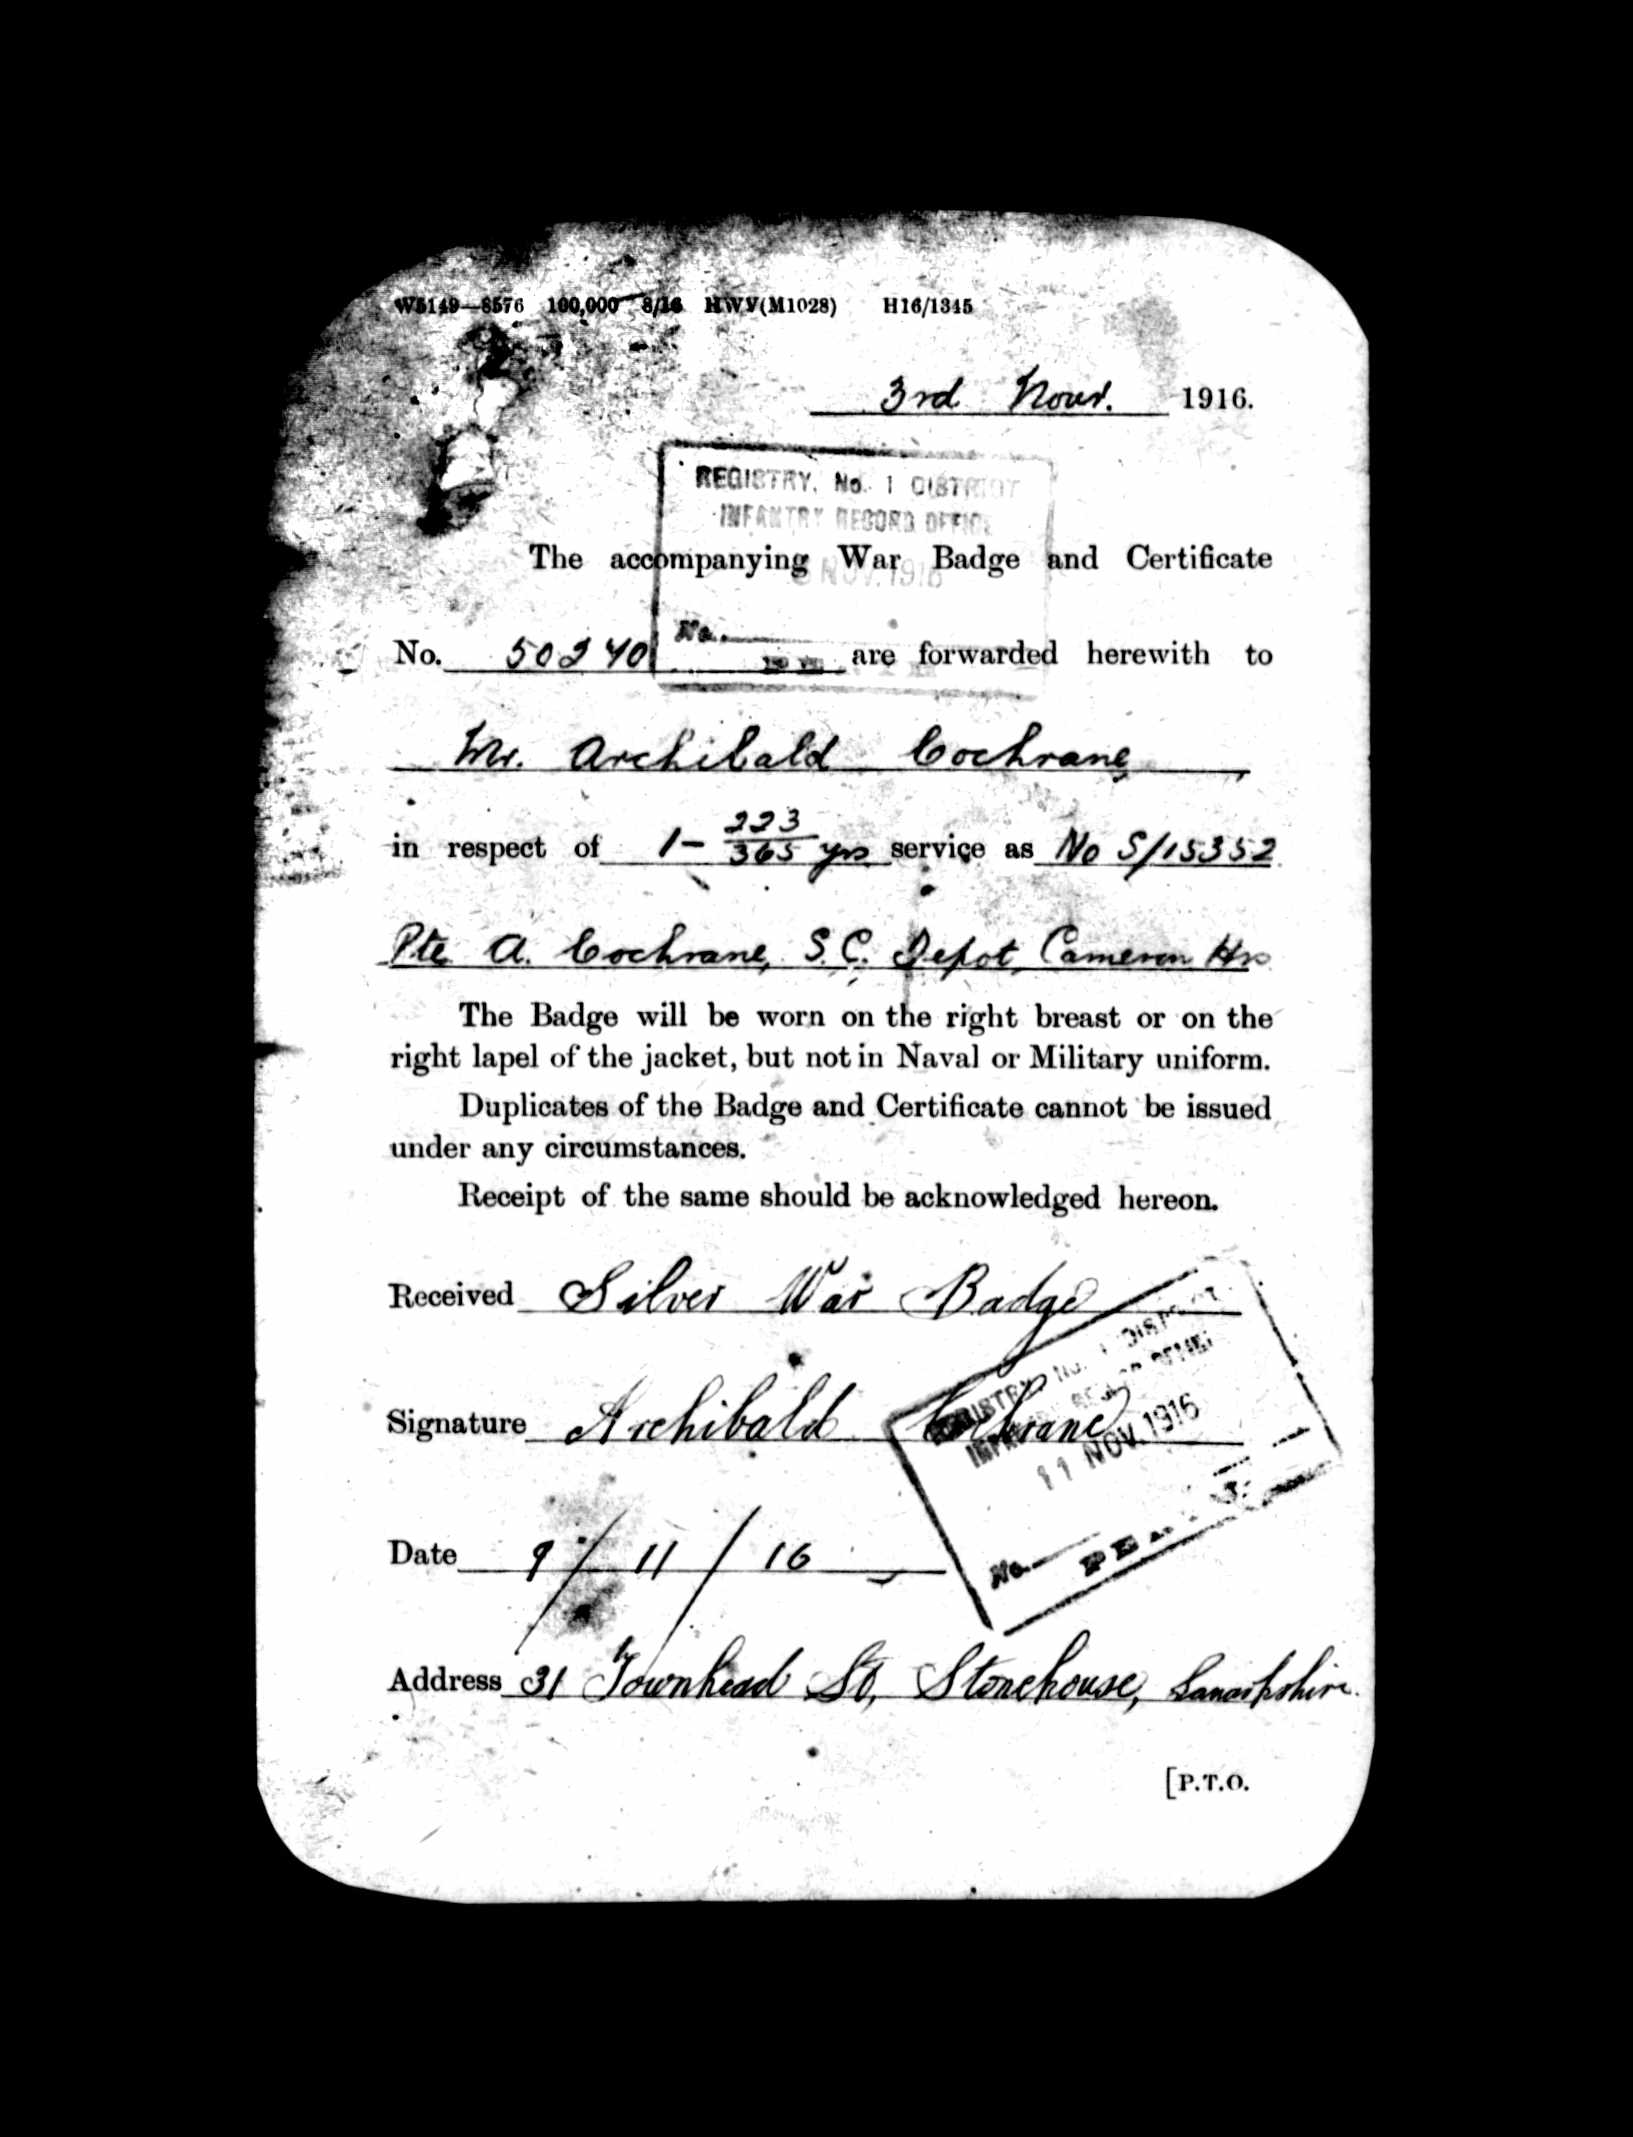 W5149—8576 100,000 8/16 HWV(M1028) H16/1345
3rd Novr. 1916.
REGISTRY, No. 1 DISTRICT
INFANTRY RECORD OFFICE
NOV. 1916
The accompanying War Badge and Certificate
No.
No. 50240 are forwarded herewith to
Mr. Archibald Cochrane,
in respect of 1-223/365 yrs service as No S/15352
Pte A. Cochrane, S.C. Depot, Cameron Hrs
The Badge will be worn on the right breast or on the
right lapel of the jacket, but not in Naval or Military uniform.
Duplicates of the Badge and Certificate cannot be issued
under any circumstances.
Receipt of the same should be acknowledged hereon.
Received Silver War Badge
REGISTRY No. 1 DISTRICT
INFANTRY RECORD OFFICE
Signature Archibald Cochrane
11 NOV. 1916
Date 9/11/16
No.
Address 31 Townhead St, Stonehouse, Lanarkshire.
[P.T.O.